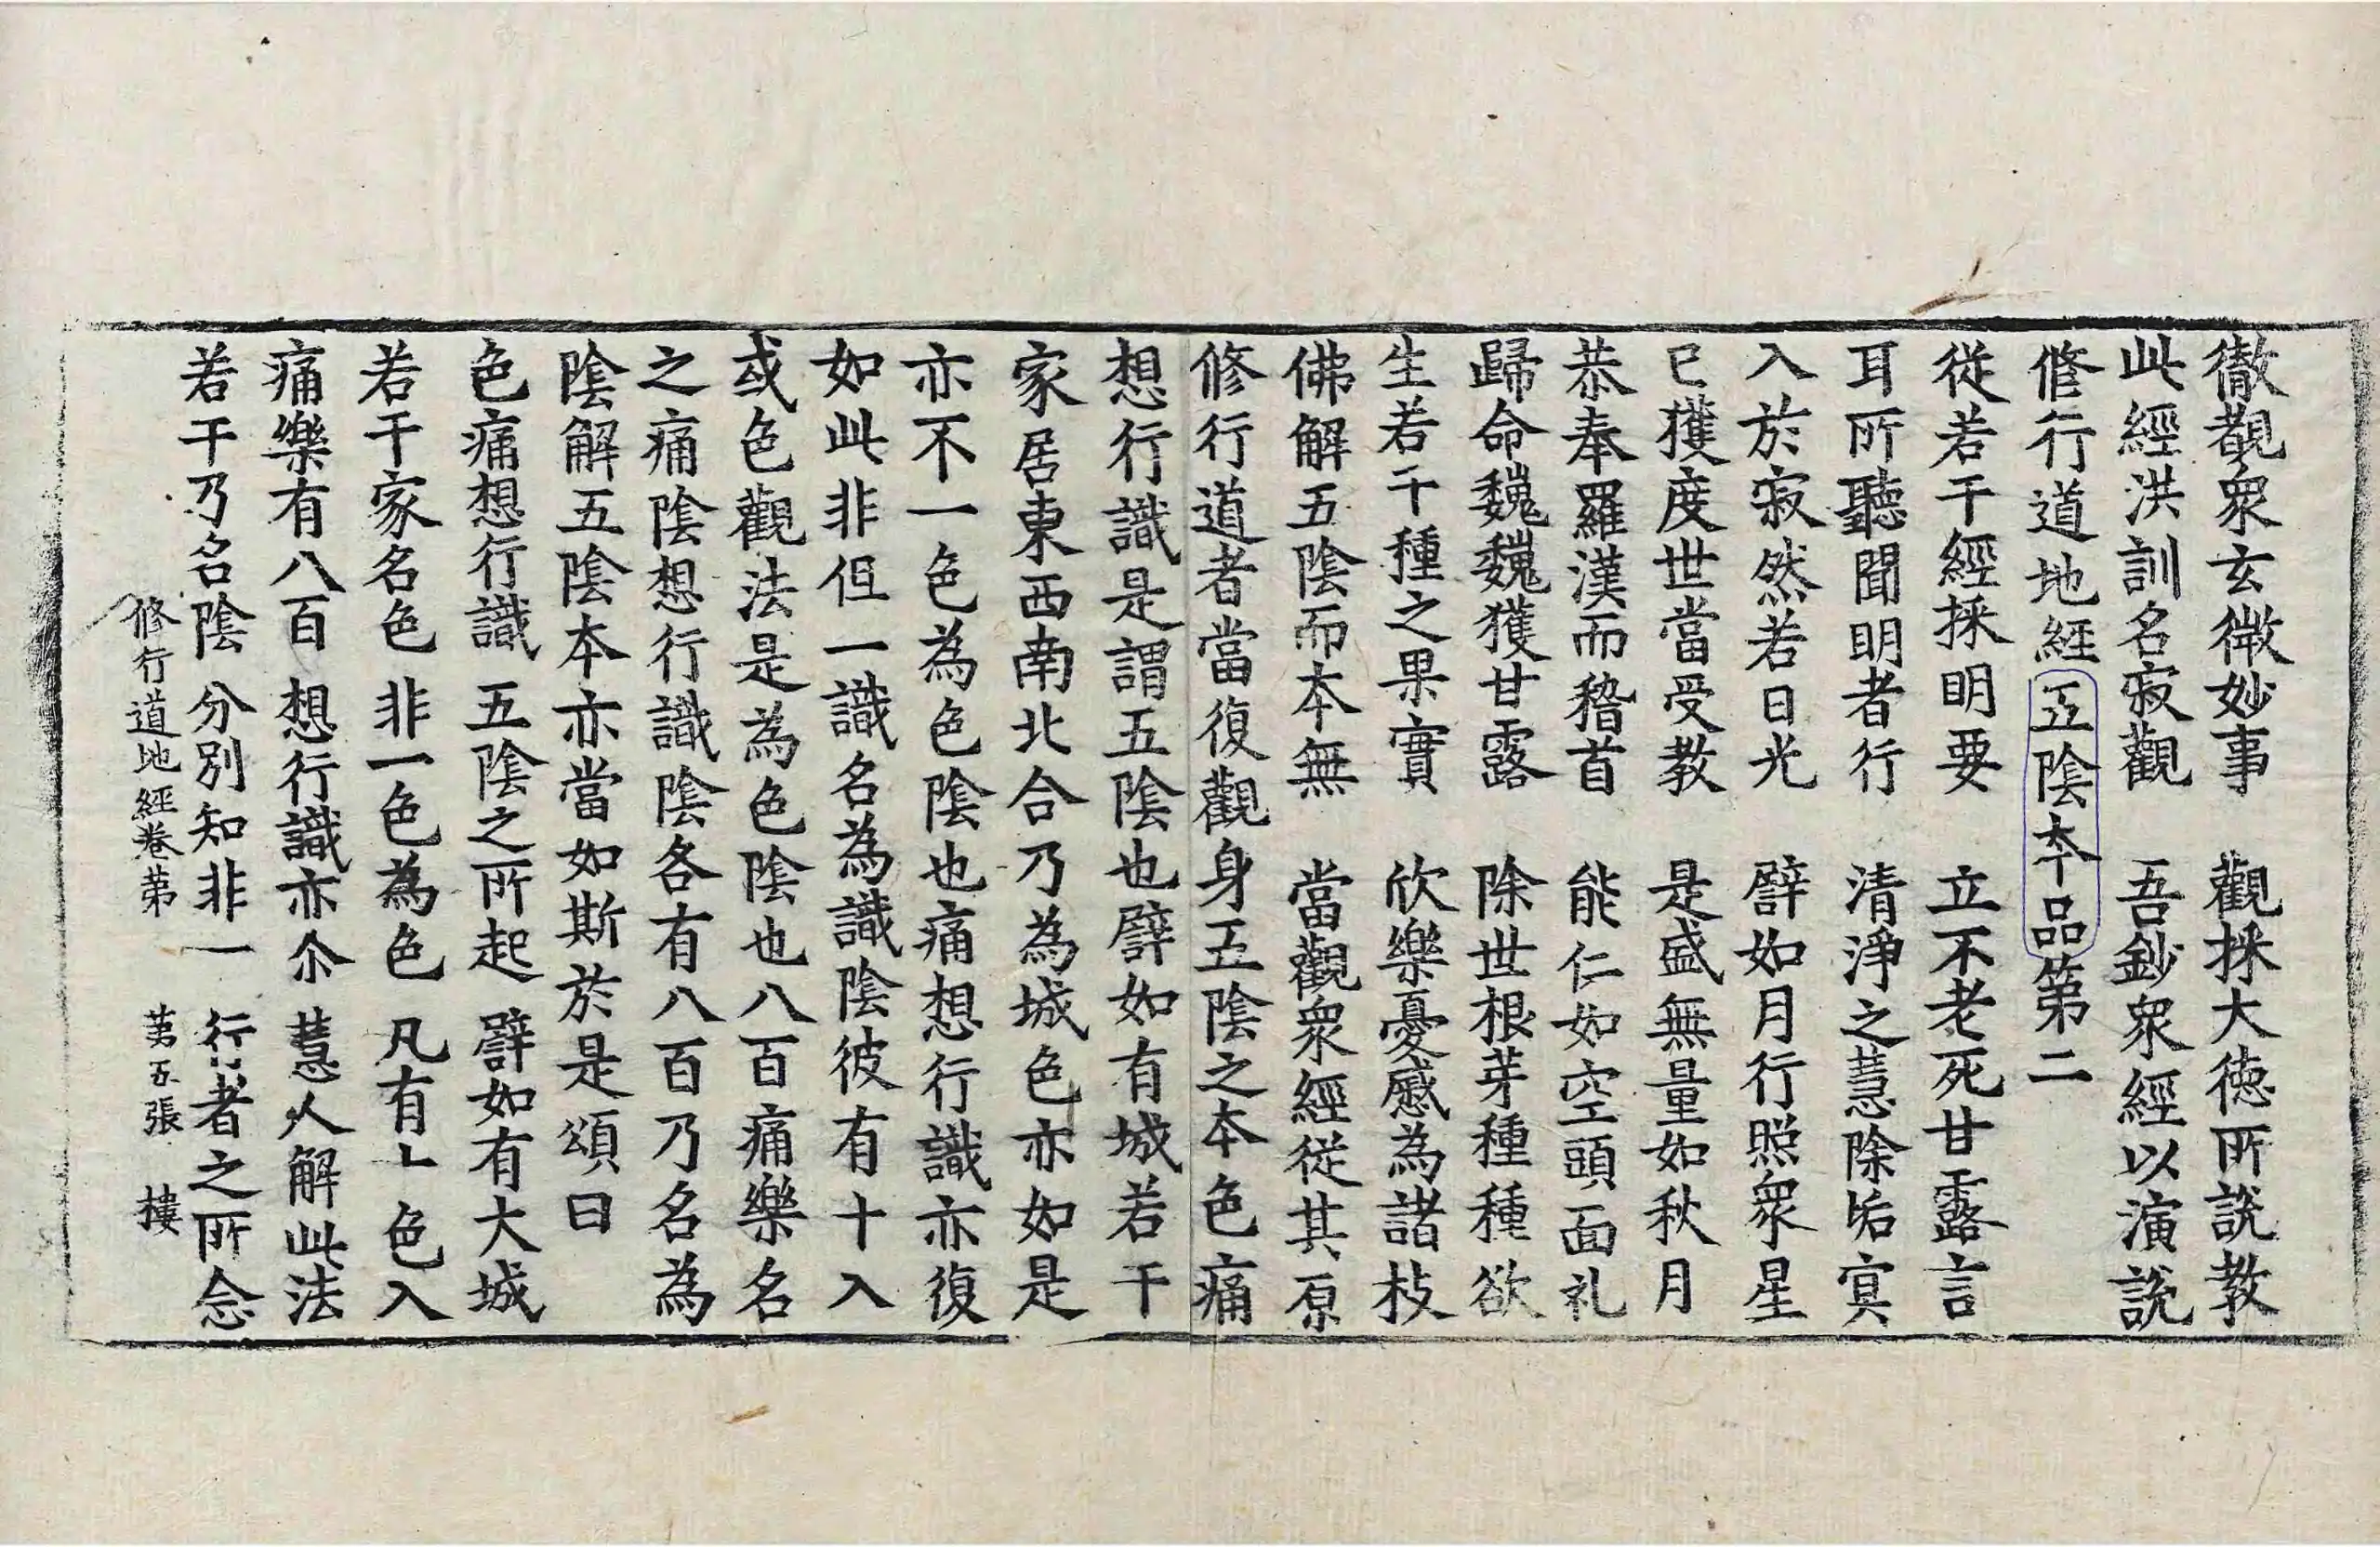 徹覩衆玄微妙事　觀採大徳所說教
此經洪訓名寂觀　吾鈔衆經以演說
修行道地經五陰本品第二
從若干經採明要　立不老死甘露言
耳所聽聞明者行　清淨之慧除垢㝠
入於寂然若日光　譬如月行照衆星
已獲度世當受教　是盛無量如秋月
恭奉羅漢而稽首　能仁如空頭面礼
歸命巍巍獲甘露　除世根芽種種欲
生若干種之果實　欣樂憂慼為諸枝
佛解五陰而本無　當觀衆經從其原
修行道者當復觀身五陰之本色痛
想行識是謂五陰也譬如有城若干
家居東西南北合乃為城色亦如是
亦不一色為色陰也痛想行識亦復
如此非但一識名為識陰彼有十入
或色觀法是為色陰也八百痛樂名
之痛陰想行識陰各有八百乃名為
陰解五陰本亦當如斯於是頌曰
色痛想行識　五陰之所起　譬如有大城
若干家名色　非一色為色　凡有色入
痛樂有八百　想行識亦尒　慧人解此法
若干乃名陰　分別知非一　行者之所念
修行道地經卷第　第五張　樓